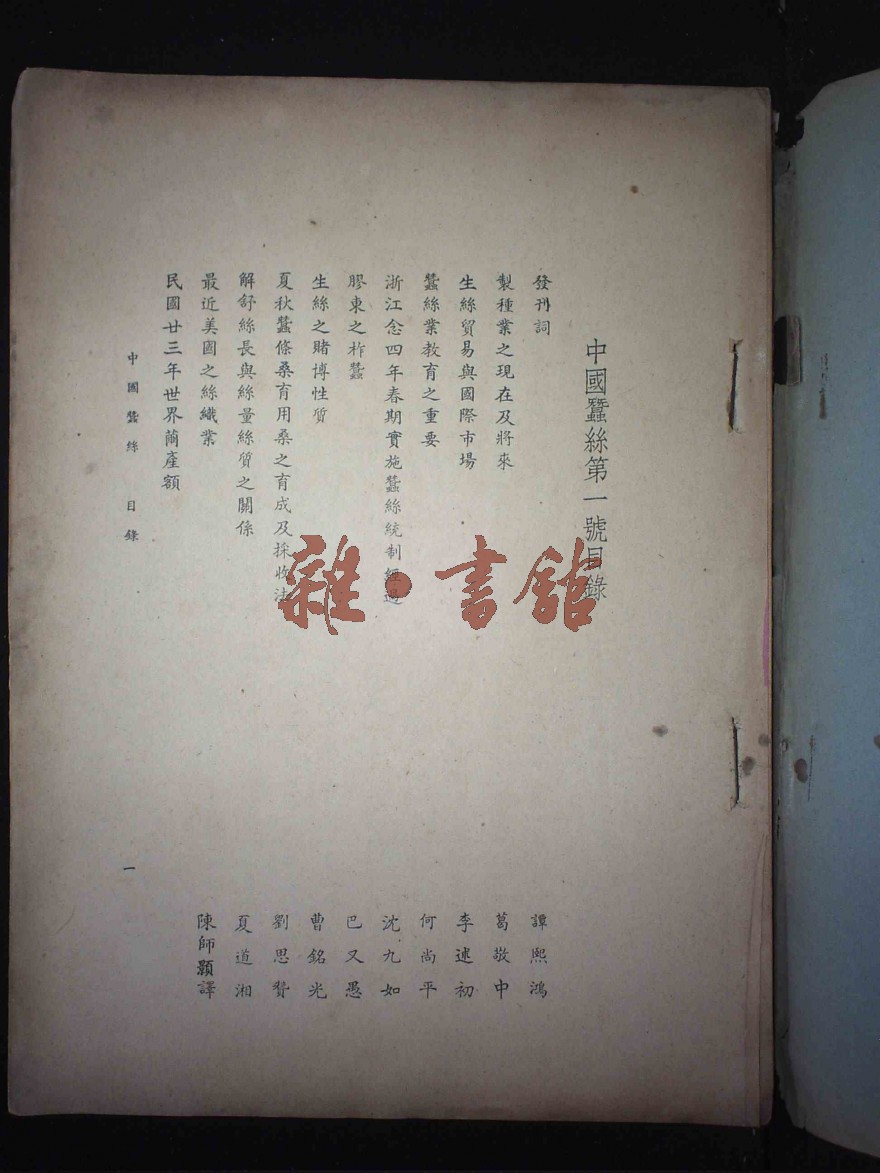 中國蠶絲第一號目錄
發刊詞
譚熙鴻
製種業之現在及將來
葛敬中
生絲貿易與國際市場
李述初
蠶絲業教育之重要
何尚平
浙江念四年春期實施蠶絲統制經過
沈九如
膠東之柞蠶
巴又愚
生絲之賭博性質
曹銘光
夏秋蠶條桑育用桑之育成及採收法
劉思贊
解舒絲長與絲量絲質之關係
夏道湘
最近美國之絲織業
陳師顥譯
民國廿三年世界繭產額
中國蠶絲 目錄
一
雜·書館